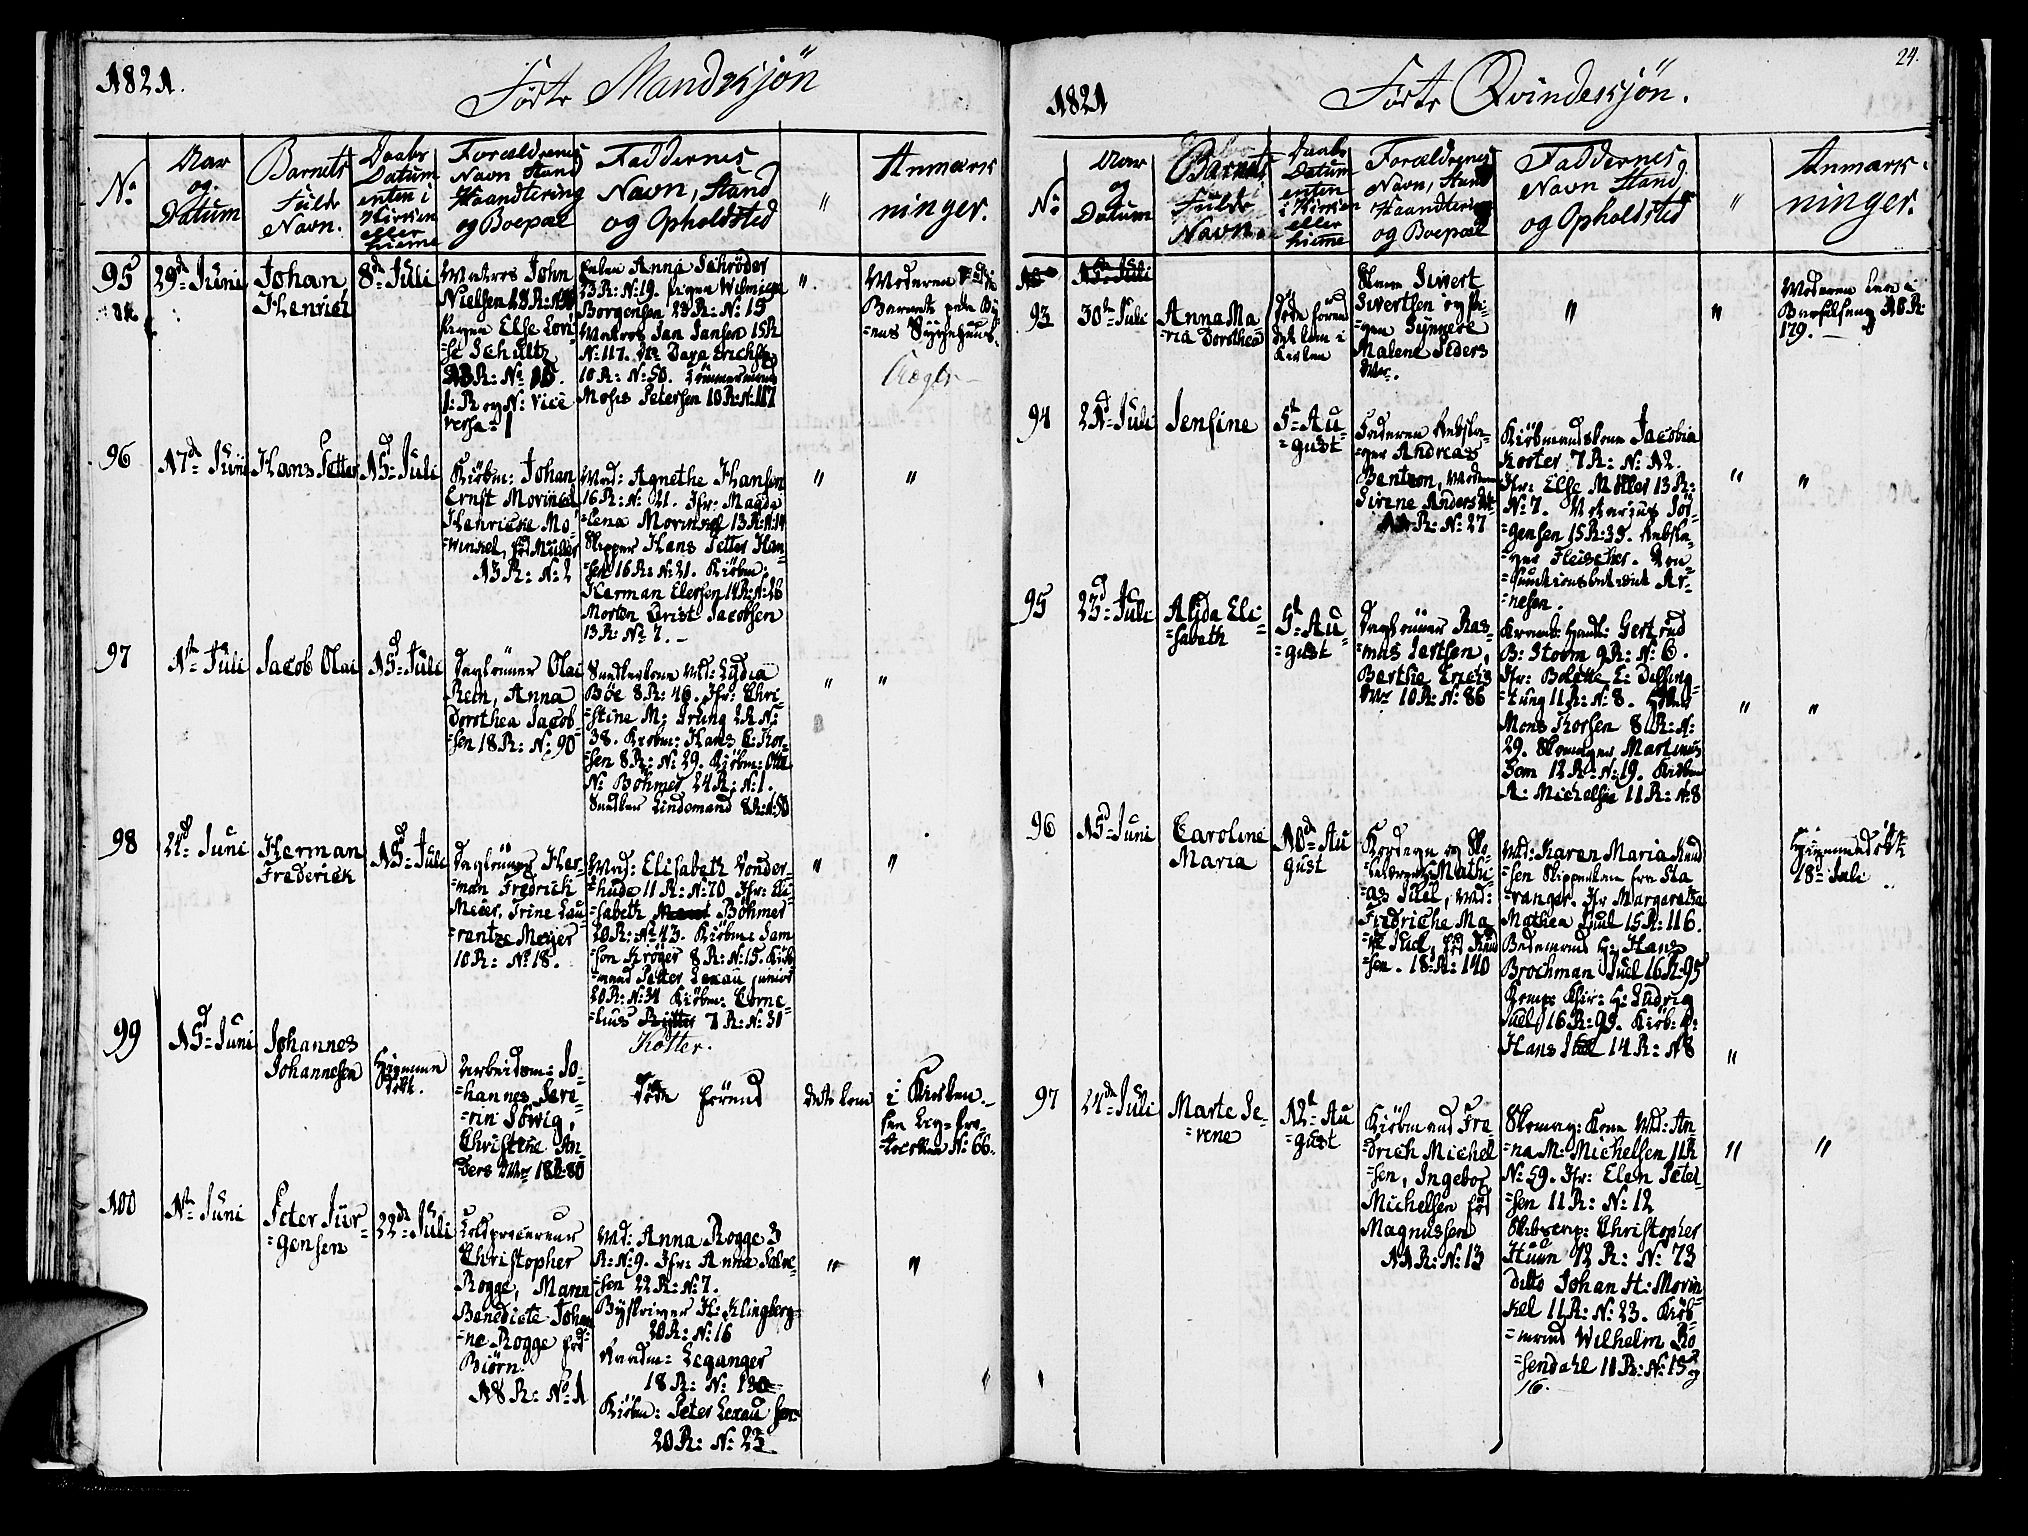 1821.
Födte Mandskjön
No
Aar
og
Datum
Barnets
Fulde
Navn.
Daabs
Datum
enten i
Kirken
eller
hieme
Forældrenes
Navn Stand
Haandtering
og Boepæl
Faddernes
Navn, Stand
og Opholdsted
"
Anmærk
ninger.
95
29d Juni
Johan
Henrich
8d Juli
Matros John
Nielsen
Pigen Else Lovi-
se Schultz
1: R og N: vice
versa
Enken Anna Schröder
23 R: N: 19. Pigen
Borgensen 23 R: N: 15
Matros Jan Jansen 15 R
N: 117.
10 R: N: 50. Tömmermand
Moses Petersen 10 R: N: 117
"
Moderen
Barnet paa By-
ens Sygehuus.
96
17d Juni
Hans Petter
15d Juli
Kiöbm: Johan
Ernst Movinkel
Henricke Mo-
winkel, föd Müller
13 R: N: 2
Mad: Agnethe Hansen
16 R: N: 21. Jfr: Magda-
lena Morinkel 13 R: N: 14
Skipper Hans Petter Han-
sen 16 R: N: 21. Kiöbm:
Herman Elersen 14 R: N: 26
Morten Christ Jacobsen
13 R: No 7.
"
"
97
1ste Juli
Jacob Olai
15d Juli
Daglönner Olai
Rein, Anna
Dorothea Jacob-
sen 18 R: N: 90
Snedkerkone Md: Lydia
Böe 8 R: 49. Jfr: Chri-
stine M: Prung 2 R N:
38. Kiöbm: Hans C: Kor-
sen 8 R: N: 29. Kiöbm: Otto
N: Böhmer 24 R: N: 1.
Snedker Lindemand 8 R: N: 50
"
"
98
24d Juni
Herman
Frederick
15d Juli
Daglönner Her-
man Fredrick
Meier, Trine Lau-
rentze Meyer
10 R: No 18.
Mad: Elisabeth Vonder-
hude 11 R: N: 70 Jfr: Eli-
sabeth Böhmer
20 R: No 43. Kiöbm: Sam-
son Kröger 8 R: N: 15. Kiöb-
mand Petter Lexau junior
20 R: N: 34 Kiöbm: Corne-
lius Rytter 7 R: N: 31
Kotter.
"
"
99
15d Juni
Johannes
Johannesen
Hiemme
döbt.
Arbeidsm: Jo-
hannes Seve-
rin Söwig,
Christene An-
ders Dtr 18 R: 80
döde forend
det kom
i Kirken.
See Lig-Pro-
tocollen N: 66.
100
1ste Juni
Peter Jür-
gensen
22de Juli
Christopher
Rogge, Maren
Benedicte Johan-
ne Rogge föd
Biörn.
18 R: No 1
Md: Anna Rogge 3
R: N: 9. Jfr: Anna
sen 22 R: N: 7.
Byskriver H: Klingberg
20 R: N: 16
Kandm: Leganger
18 R: N: 130
Kiöbm: Peter Lexau sen-
20 R: N: 23
"
"
24.
1821
Födte Qvindeskjön.
No
Aar
og
Datum
Barnets
Fulde
Navn.
Daabs
Datum
enten
i Kirken
eller
hieme
Forældrenes
Navn, Stand
Haandtering
og Boepæl
Faddernes
Navn Stand
og Opholdsted
"
Anmærk-
ninger.
15de Juli
93
30te Juli
Anna Ma-
ria Dorothea
Döde forend
det kom i
Kirken
Sivert
Sivertsen og Pi-
gen Synneve
Malene Peders
Dtr.
"
"
Moderen
179.
94
21d Juli
Jensine
5te Au-
gust
Faderen Rebsla-
ger Andreas
Bentzon, Moderen
Sirene Anders Dtr
R: N: 27
Kiöbmandskone Jacobia
Koster 7 R: N: 12.
Jfr: Else Möller 13 R:
N: 7. Jör-
gensen 15 R: 39. Rebsla-
ger Fleischer.
Ar-
nesen.
"
"
95
23d Juli
Alida Eli-
sabeth
5te Au-
gust
Daglönner Ras-
mus Jertsen,
Berthe Erichs
Dtr 10 R: N: 86
Gertrud
B: Storm 9 R: N: 6.
Jfr: Bolette E: Delling-
tung 11 R: N: 8.
Mons Korsen 8 R: N:
29. Skomager Martinus
Som 12 R: N: 19. Kiöbm
A: Michelsen 11 R: N: 8
"
"
96
15d Juni
Caroline
Maria
10de Au-
gust
Kordegn og Sko-
lelærer Mathi-
as Juel, Md:
Fredriche Ma-
rie Juel, föd Knud-
sen. 18 R: 140
Md: Karen Maria Knud-
sen Skipperkone fra Sta-
vanger. Jfr Margaretha
Mathea Juul 15 R: 116.
Bedemand H: Hans
Brochman Juel 16 R: 95
Comp: Chir: H: Ludvig
Juell 16 R: 95. Kiöb:
Hans 14 R: N 8
"
Hjemmedöbt
18de Juli
97
24de Juli
Marte Se-
verene
12te Au-
gust
Kiöbmand Fre-
drich Michel-
sen, Ingebor
Michelsen föd
Magnussen
11 R: N: 13
Skomag: Kone Md: An-
na M: Michelsen 11 R
N: 59. Jfr: Elen Peter-
sen 11 R: N: 12
Skibscap: Christopher
Huun 12 R: N: 73
dito Johan H: Movin-
kel 11 R: N: 23. Kiöb-
mand Wilhelm Ro-
sendahl 11 R: N: 15 og
16.
"
"